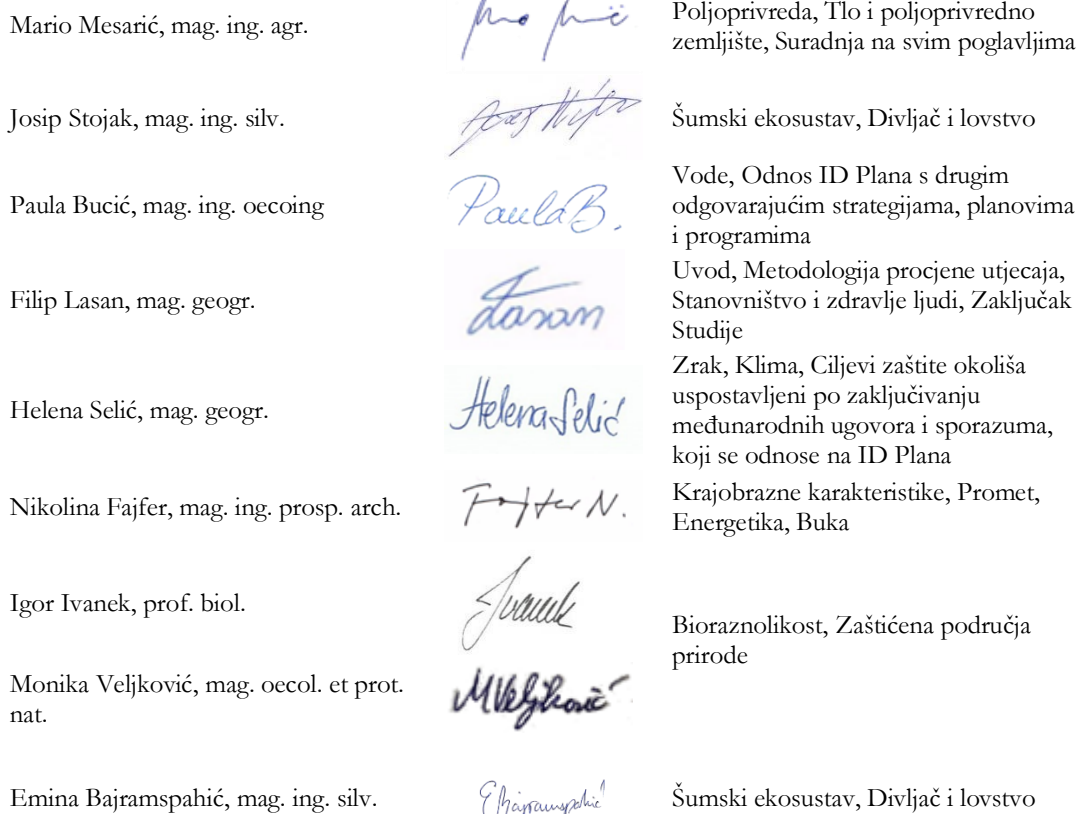 Mario Mesarić, mag. ing. agr.
Poljoprivreda, Tlo i poljoprivredno
zemljište, Suradnja na svim poglavljima
Josip Stojak, mag. ing. silv.
Šumski ekosustav, Divljač i lovstvo
Paula Bucić, mag. ing. oecoing
PaulaB.
Vode, Odnos ID Plana s drugim
odgovarajućim strategijama, planovima
i programima
Filip Lasan, mag. geogr.
Lasan
Uvod, Metodologija procjene utjecaja,
Stanovništvo i zdravlje ljudi, Zaključak
Studije
Helena Selić, mag. geogr.
Helena Selić
Zrak, Klima, Ciljevi zaštite okoliša
uspostavljeni po zaključivanju
međunarodnih ugovora i sporazuma,
koji se odnose na ID Plana
Nikolina Fajfer, mag. ing. prosp. arch.
Fajfer N.
Krajobrazne karakteristike, Promet,
Energetika, Buka
Igor Ivanek, prof. biol.
Ivanek
Bioraznolikost, Zaštićena područja
prirode
Monika Veljković, mag. oecol. et prot.
nat.
MVeljković
Emina Bajramspahić, mag. ing. silv.
EBajramspahić
Šumski ekosustav, Divljač i lovstvo